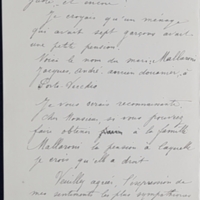 encore !
Je croyais qu'un ménage
que avait sept garçons avait
une petite pension.
Voici le nom du marin Mallaroni
Jacques André, ancien douanier, à
Porto-Vecchio
Je vous serais reconnaissante
cher Monsieur, si vous pouviez
faire obtenir à la famille
Mallaroni la pension à laquelle
je crois qu'elle a droit.
Veuillez agréer l'expression de
mes sentiments les plus sympathiques